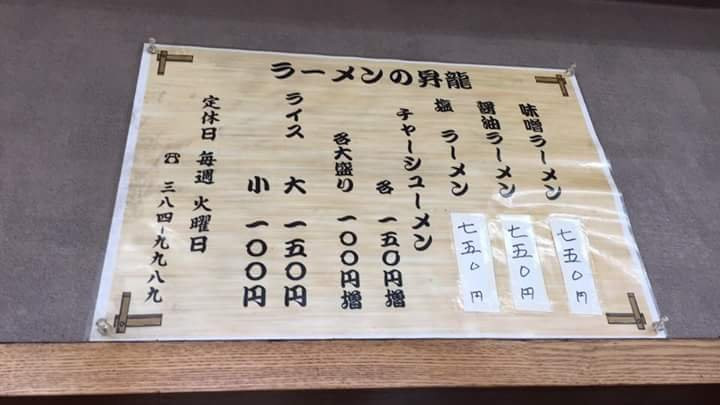 ラーメンの昇龍
味噌ラーメン 七五〇円
醤油ラーメン 七五〇円
塩 ラーメン 七五〇円
チャーシューメン 各 一五〇円増
各大盛り 一〇〇円増
ライス 大 一五〇円
小 一〇〇円
定休日 毎週 火曜日
☎ 三八四-九九八九